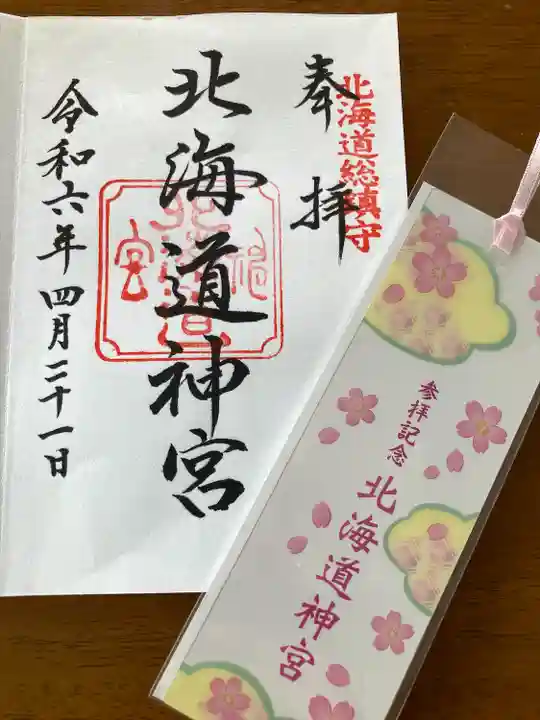 奉拝
北海道総鎮守
北海道神宮
北海道神宮
令和六年四月二十一日
参拝記念
北海道神宮